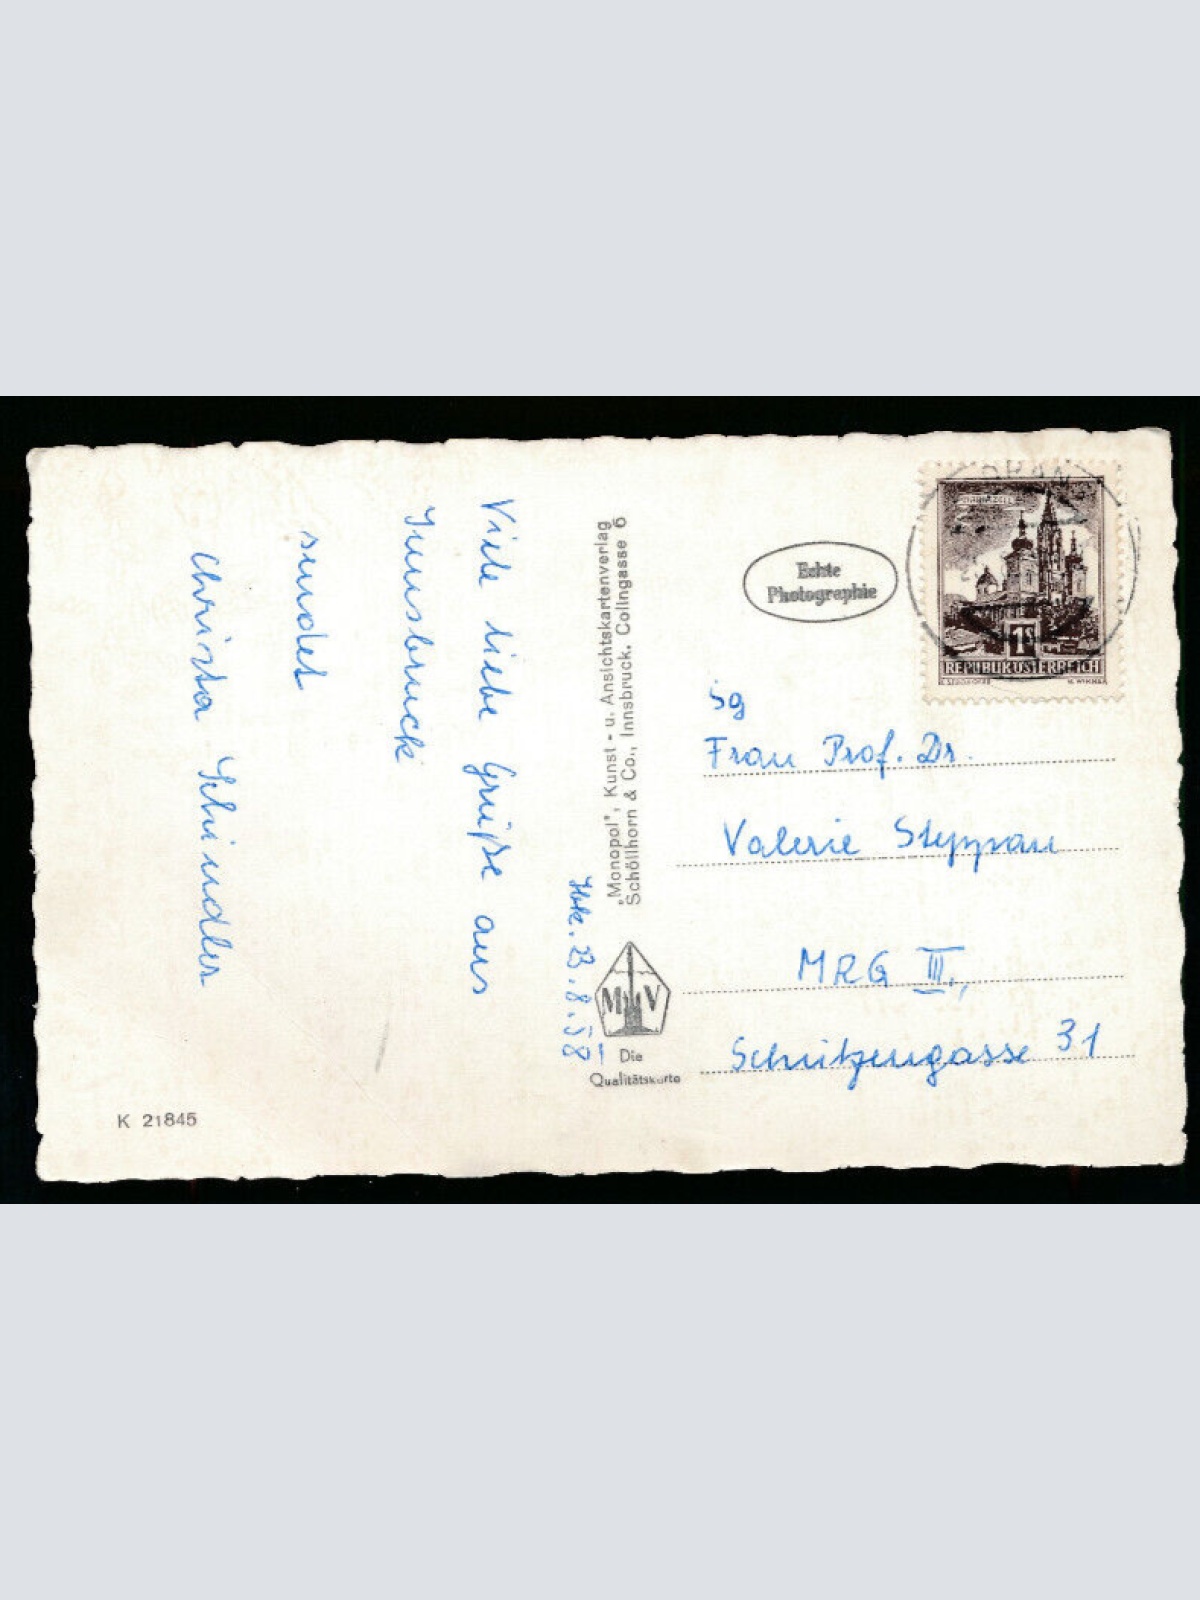 Viele liebe Grüße aus
Innsbruck
sendet
Christa Schindler
Ibk. 23.8.58
"Monopol", Kunst- u. Ansichtskartenverlag
Schöllhorn & Co., Innsbruck. Colingasse 6
MV
Die
Qualitätskarte
K 21845
Echte
Photographie
MARIAZELL
1 S
REPUBLIK ÖSTERREICH
Frau Prof. Dr.
Valerie Steppan
MRG III.,
Schützengasse 31